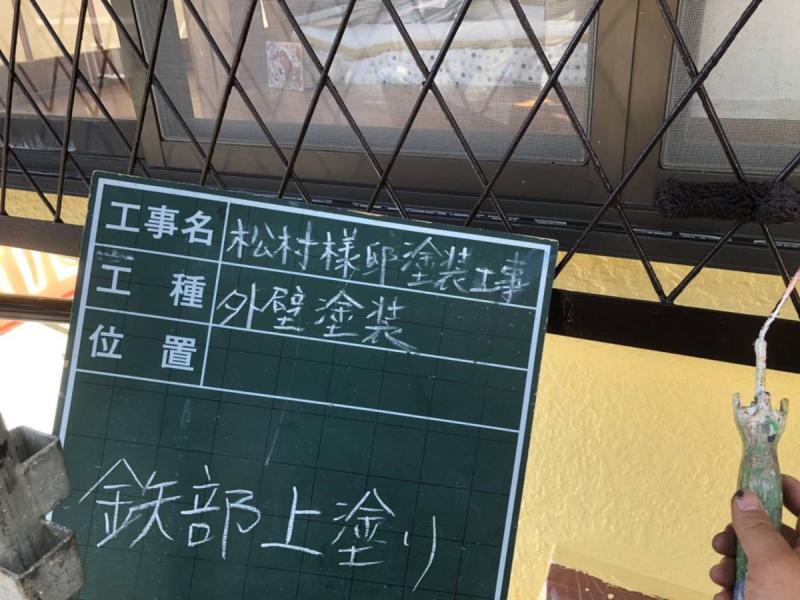 工事名 松村様邸塗装工事
工種 外壁塗装
位置
鉄部上塗り